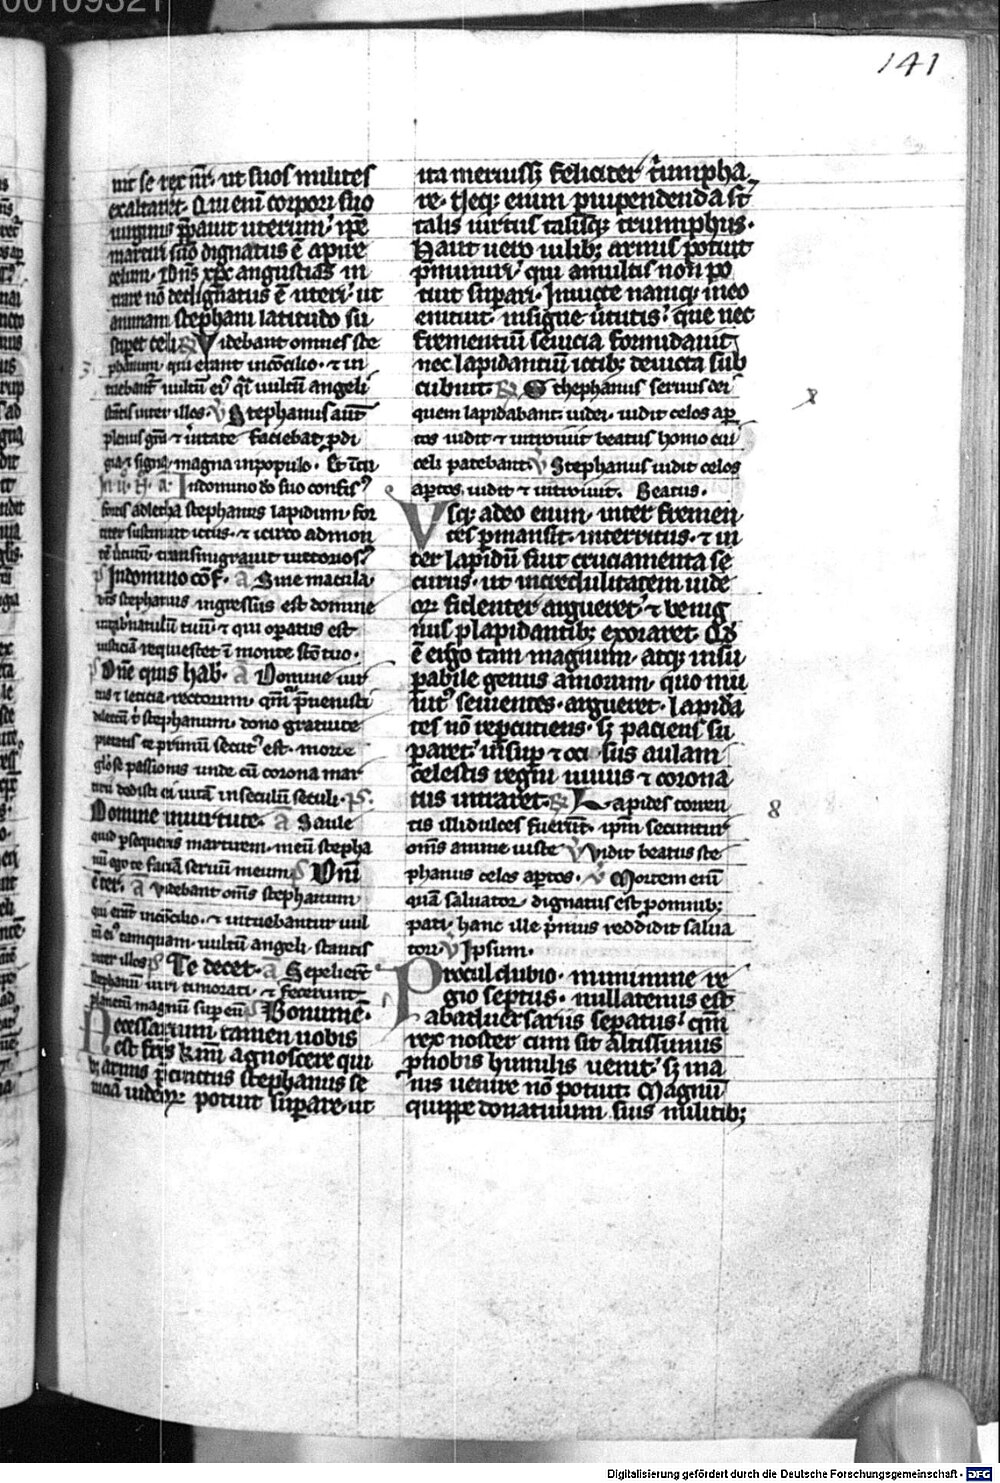 141
exaltaret. Qui enim corpori suo
martiri suo dignatus ē apire
celum. Dns xpc angustias in
trare nō dedignatus ē uteri. ut
animam stephani latitudo su
sciperet celi. Videbant omnes ste
phanum. qui erant in cōcilio. ⁊ in
tuebant̄ uultū eiꝰ q̄i uultū angeli
stātis inter illos. ṽ Stephanus aut̄
plenus grā ⁊ uitate faciebat pdi
gia ⁊ signa magna in populo. Et
ā In domino do suo confisꝰ
fortis adletha stephanus lapidum for
titer sustinuit ictus. ⁊
transmigrauit uictoriosꝰ
p̄ In domino cōf. ā Sine macula
bts stephanus ingressus est domine
in tab̄natulū tuū ⁊ qui opatus est
iusticiā requiescet ī monte scō tuo.
p̄ Dn̄e quis hab. ā Domine uir
tus ⁊ leticia rectorum. qm̄ p̄uenisti
dilectū t̄ stephanum. dono gratuite
pietatis te primū secutꝰ est. morte
gl̄ose passionis unde cū corona mar
tirii dedisti ei uitā in seculū seculi. p̄s.
Domine in uirtute. ā Saule
quid psequeris martirem. meū stepha
nū ego te faciā seruū meum. p̄ Dn̄i
ē ter. ā Videbant oms stephanum
qui erāt in cōcilio. ⁊ intuebantur uul
tū eiꝰ tamquam. uultū angeli. stantis
inter illos p̄ Te decet. ā Sepelierūt
stephanū uiri timorati. ⁊ fecerunt
planctū magnū super eū p̄ Bonum ē.
Necessarium tamen nobis
est frēs kmī agnoscere qui
b; armis p̄cinctus stephanus se
uiciā potuit supare. ut
ita meruiss; feliciter t̄umpha
talis uirtus talisq; triumphus.
Haut uero uilib; armis potuit
p̄muniri qui a multis non po
tuit supari. Inuicte namq; in eo
enituit. insigne uirtutis. que nec
frementiū seuicia formidauit
nec lapidantiū ictib; deuicta sub
cubuit. R Sthephanus seruus dei
quem lapidabant iudei. uidit celos ap
tos uidit ⁊ introiuit beatus homo cui
celi patebant. ṽ Stephanus uidit celos
aptos. uidit ⁊ introiuit. Beatus.
Vsq; adeo enim. inter fremen
tes pmansit. interritus. ⁊ in
ter lapidū fuit cruciamenta se
curus. ut incredulitatem iude
orꝝ fidenter argueret ⁊ benig
nus p lapidantib; exoraret. Qd
ē ergo tam magnum. atq; insu
pabile genus armorum. quo mu
nitꝰ seuientes. argueret. lapidā
tes nō repcutiens. s; paciens su
paret. insup ⁊ occisus aulam
celestis regni uiuus ⁊ corona
tus intraret. R Lapides torren
tis illi dulces fuerūt. ipm secuntur
om̄s anime iuste ṽ Vidit beatus ste
phanus celos aptos. ṽ Mortem enī
quā saluator. dignatus est p omnib;
pati. hanc ille p̄mius reddidit salua
tori. ṽ Ipsum.
8
Procul dubio. munimine re
gio septus. nullatenus est
ab aduersariis sepatus. qm̄
rex noster cum sit altissimus
p nobis humilis uenit. s; ina
nis uenire nō potuit. Magnū
quippe donatiuum suis militib;
Digitalisierung gefördert durch die Deutsche Forschungsgemeinschaft - DFG